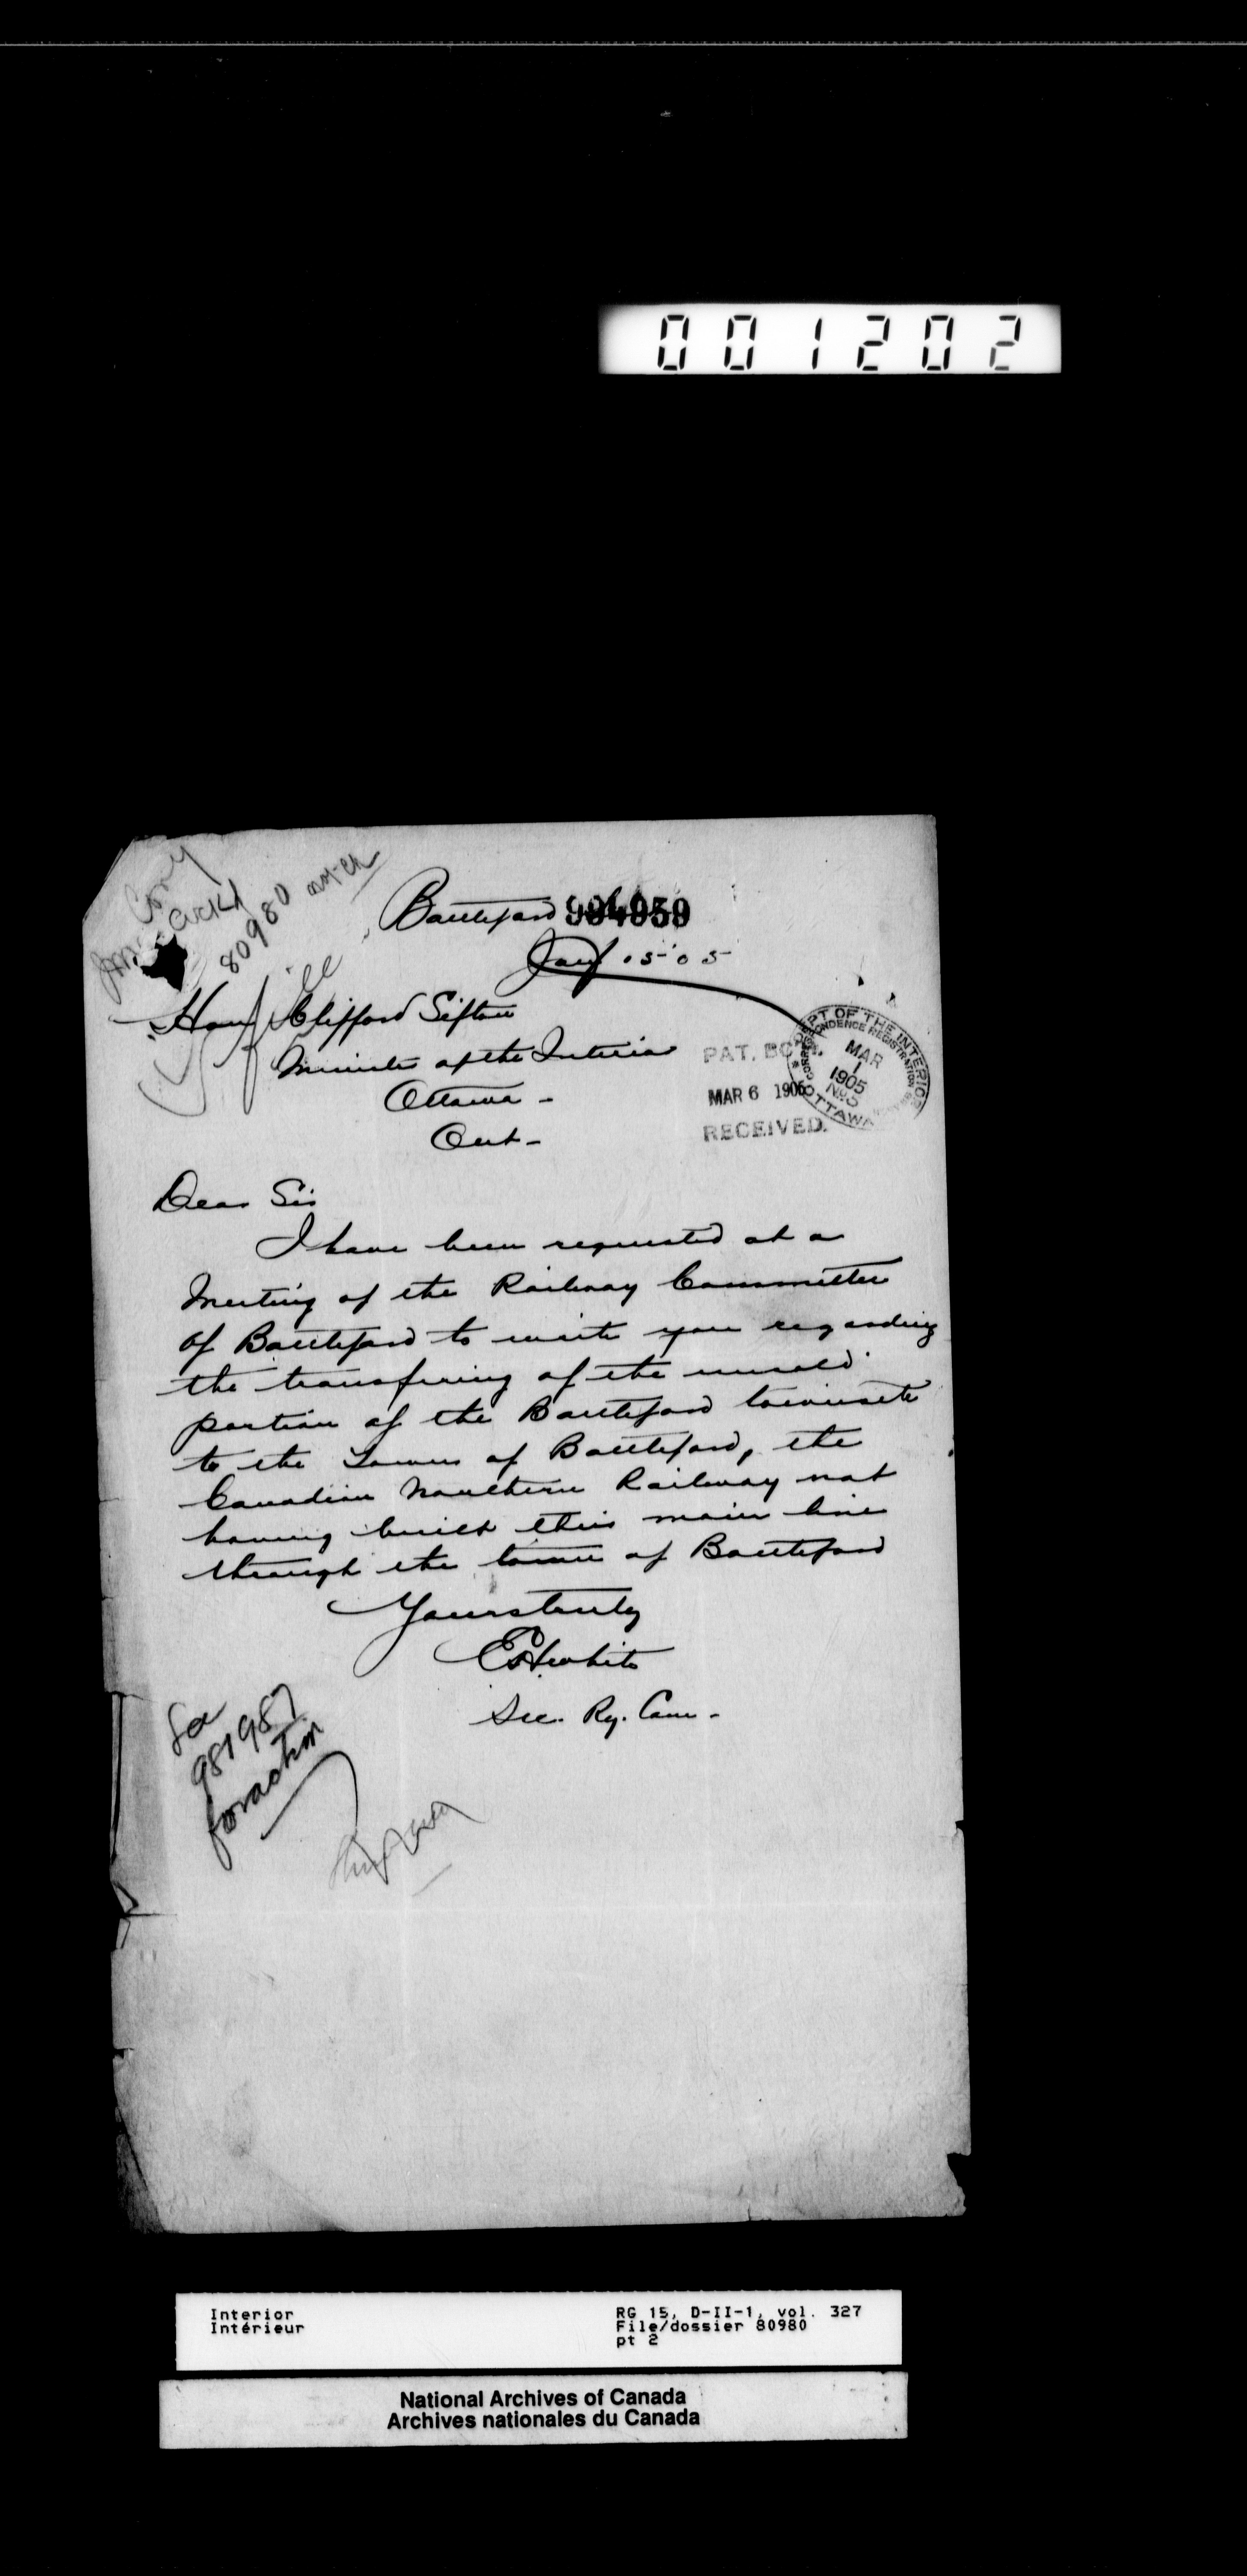 001202
80980
Battleford
994959
Jany 15 05
Hon Clifford Sifton
Minister of the Interior
Ottawa -
Ont -
DEPT OF THE INTERIOR
CORRESPONDENCE REGISTRATION
MAR
1
1905
No. 5
OTTAWA
PAT.
MAR 6 1905
RECEIVED.
Dear Sir
I have been requested at a
Meeting of the Railway Committee
of Battleford to write you regarding
the transfering of the unsold
portion of the Battleford townsite
to the Town of Battleford, the
Canadian Northern Railway not
having built their main line
through the town of Battleford
Yours truly
E H White
Sec. Ry. Com -
981987
for action
Interior
Intérieur
RG 15, D-II-1, vol. 327
File/dossier 80980
pt 2
National Archives of Canada
Archives nationales du Canada